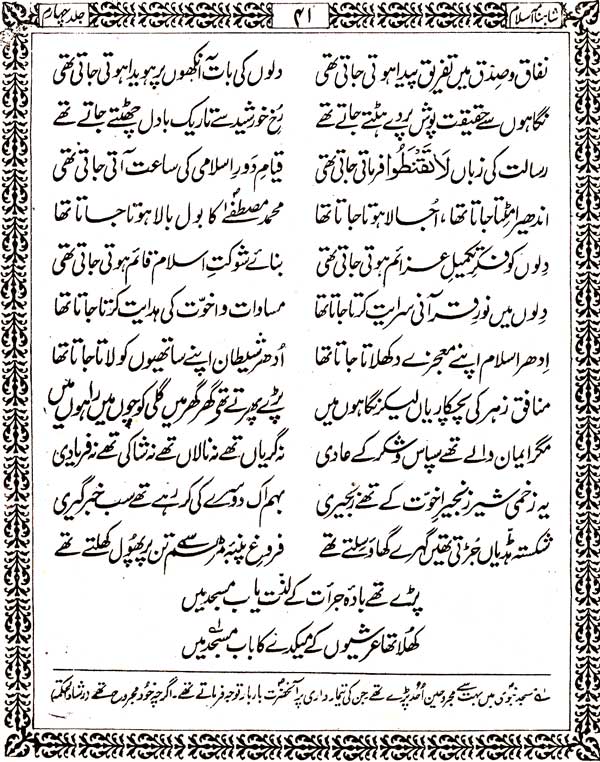 شاہنامہ اسلام ۴۱ جلد چہارم
نفاق و صدق میں تفریق پیدا ہوتی جاتی تھی دلوں کی بات آنکھوں پر ہویدا ہوتی جاتی تھی
نگاہوں سے حقیقت پوش پردے ہٹتے جاتے تھے رخ خورشید سے تاریک بادل چھٹتے جاتے تھے
رسالت کی زباں لَا تَقْنَطُوا فرماتی جاتی تھی قیامِ دورِ اسلامی کی ساعت آتی جاتی تھی
اندھیرا مٹتا جاتا تھا، اُجالا ہوتا جاتا تھا محمد مصطفےٰؐ کا بول بالا ہوتا جاتا تھا
دِلوں کو فکرِ تکمیلِ عزائم ہوتی جاتی تھی بنائے شوکتِ اسلام قائم ہوتی جاتی تھی
دلوں میں نورِ قرآنی سرایت کرتا جاتا تھا مساوات و اخوّت کی ہدایت کرتا جاتا تھا
اِدھر اسلام اپنے معجزے دکھلاتا جاتا تھا اُدھر شیطان اپنے ساتھیوں کو لاتا جاتا تھا
منافق زہر کی پچکاریاں لیکر نگاہوں میں پڑے پھرتے تھے گھر گھر میں گلی کوچوں میں راہوں میں
مگر ایمان والے تھے سپاس و شکر کے عادی نہ گریاں تھے نہ نالاں تھے نہ شاکی تھے نہ فریادی
یہ زخمی شیر زنجیرِ اخوّت کے تھے زنجیری بہم اک دوسرے کی کر رہے تھے سب خبرگیری
شکستہ ہڈیاں جڑتی تھیں گہرے گھاؤ سِلتے تھے فروغِ پنبہ مرہم سے تن پر پھول کھلتے تھے
پڑے تھے بادہ جرأت کے لذت یاب مسجد میں
کھلا تھا عرشیوں کے میکدے کا باب مسجد میں
لے مسجد نبوی میں بہت سے مجروحین اُحد پڑے تھے جن کی تیمارداری پر آنحضرتؐ بار بار توجہ فرماتے تھے۔ اگرچہ خود مجروح تھے